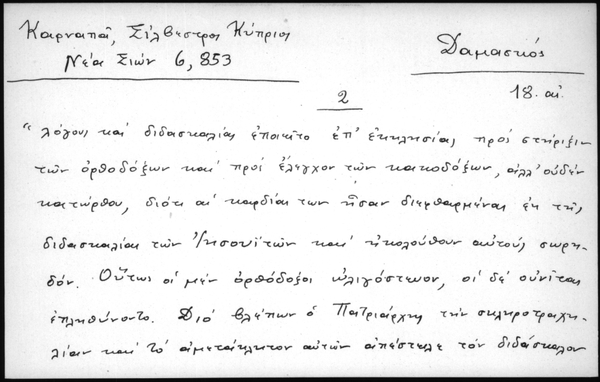 Καρναπᾶ, Σίλβεστρος Κύπριος
Νέα Σιών 6, 853
Δαμασκός
18. αἰ.
2
"λόγους καὶ διδασκαλίας ἐποιεῖτο ἐπ' ἐκκλησίας πρὸς στήριξιν
τῶν ὀρθοδόξων καὶ πρὸς ἔλεγχον τῶν κακοδόξων, ἀλλ' οὐδὲν
κατώρθου, διότι αἱ καρδίαι των ἦσαν διεφθαρμέναι ἐκ τῆς
διδασκαλίας τῶν Ἰησουϊτῶν καὶ ἠκολούθουν αὐτοὺς σωρη-
δόν. Οὕτως οἱ μὲν ὀρθόδοξοι ὠλιγόστευον, οἱ δὲ οὐνῖται
ἐπληθύνοντο. Διὸ βλέπων ὁ Πατριάρχης τὴν σκληροτραχη-
λίαν καὶ τὸ ἀμετάκλητον αὐτῶν ἀπέστειλε τὸν διδάσκαλον